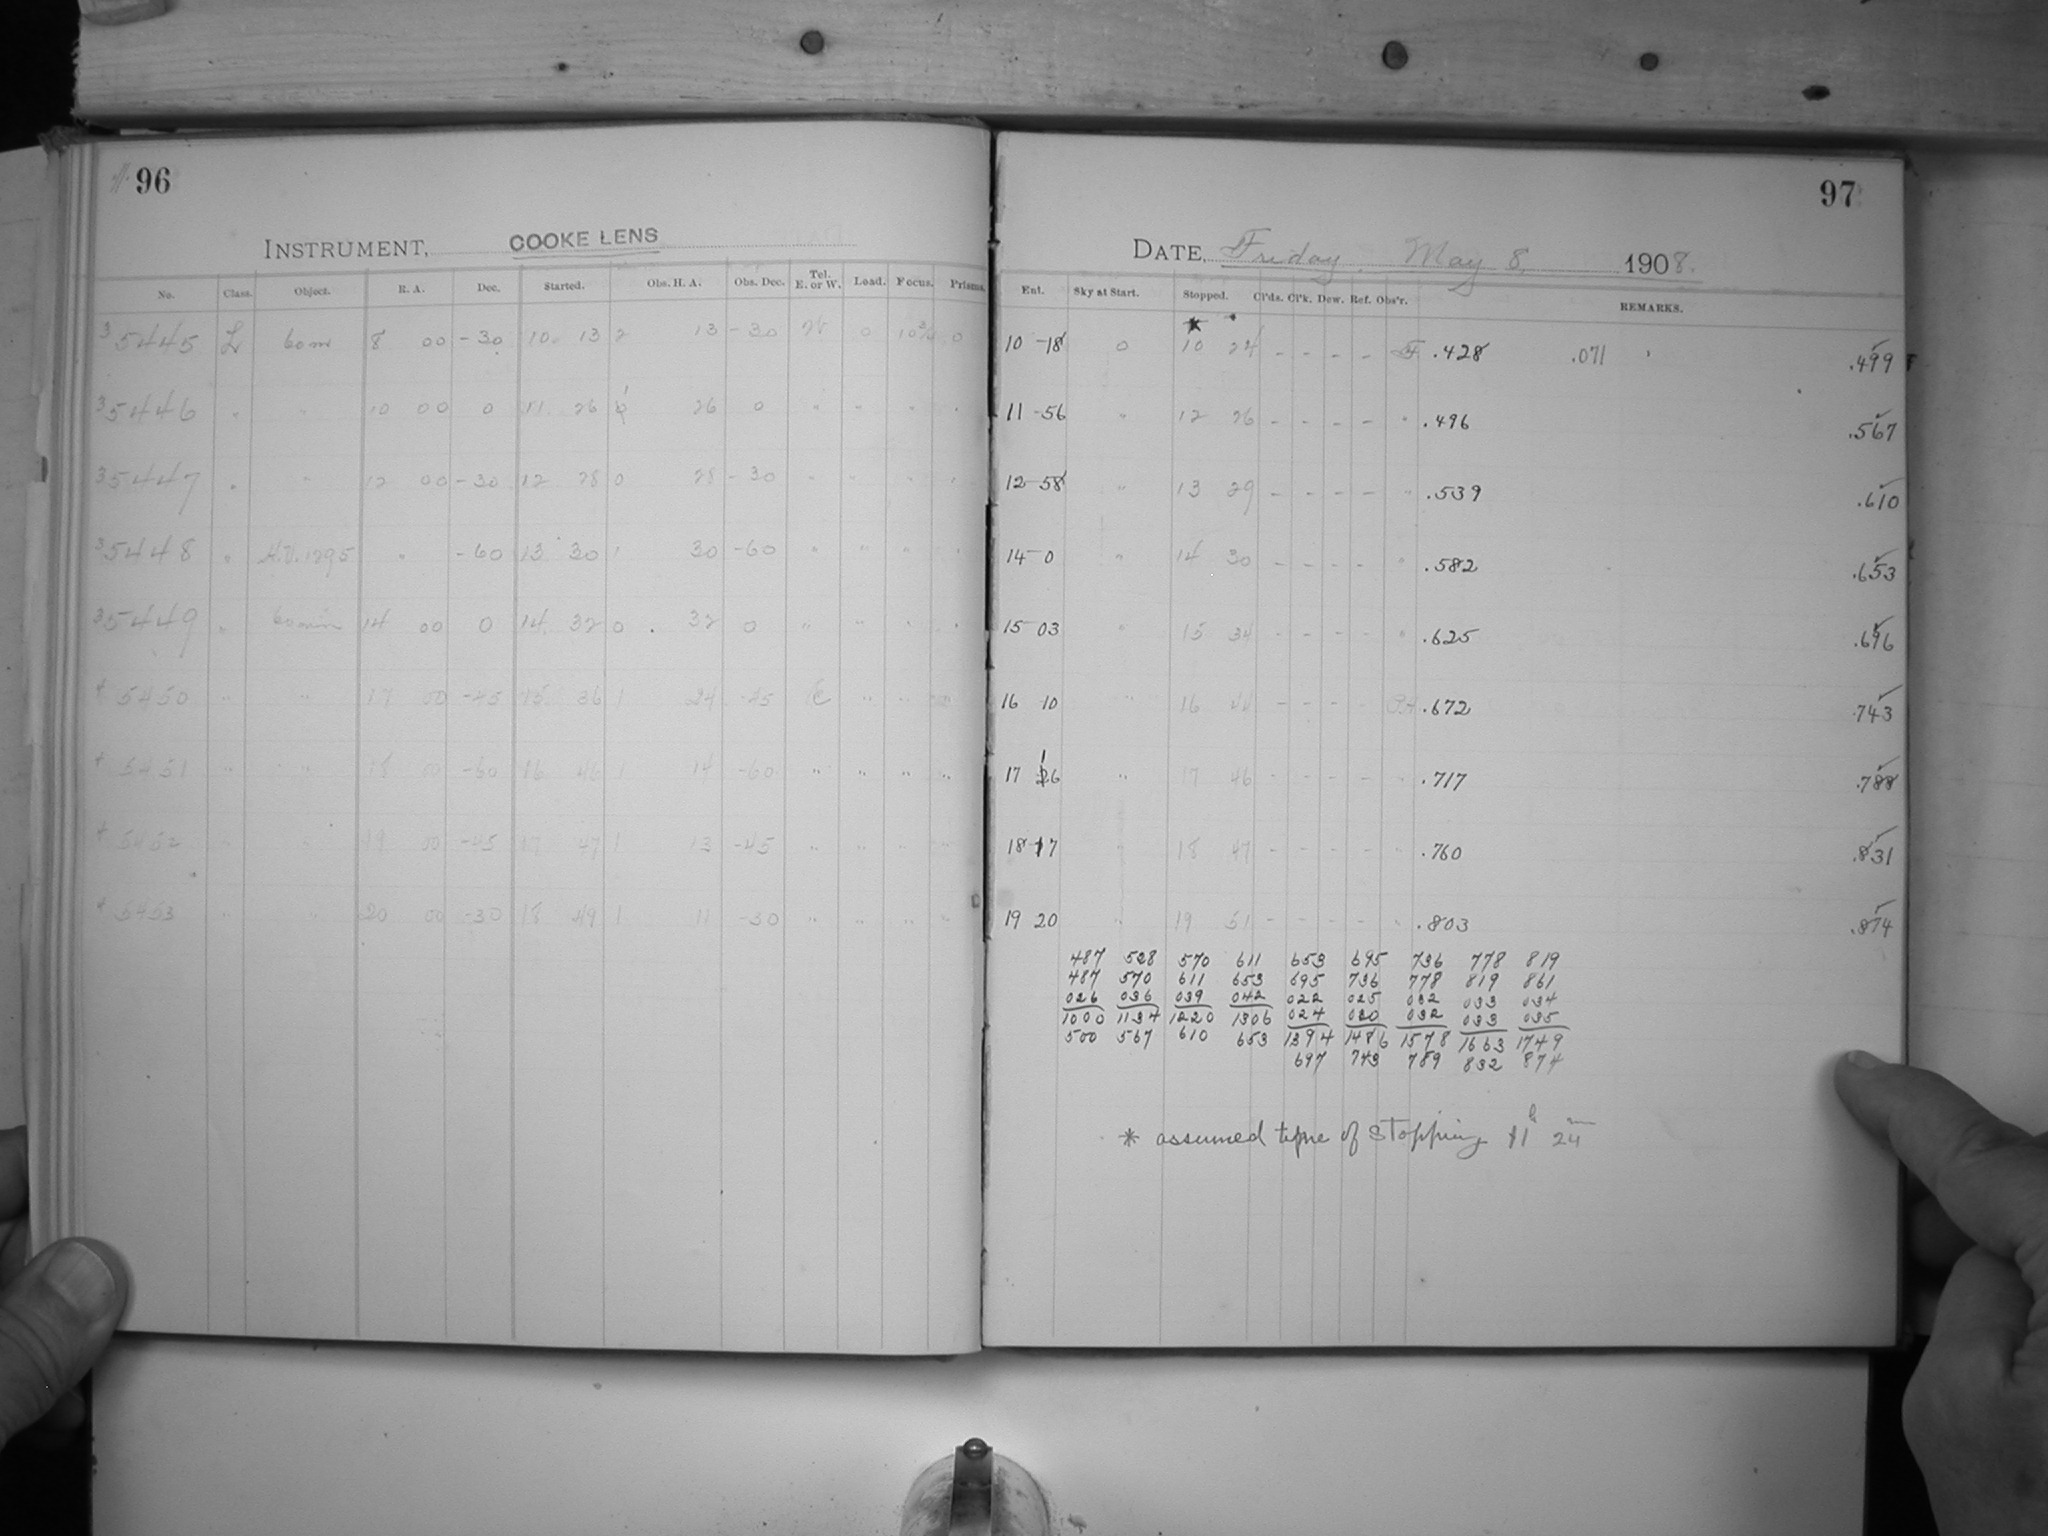 96
INSTRUMENT, COOKE LENS
No. Class. Object. R. A. Dec. Started. Obs. H. A. Obs. Dec. Tel. E. or W. Load. Focus. Prisms.
35445 L 60m 8 00 -30 10 13 2 13 -30 W 0 10 3/4 0
35446 " " 10 00 0 11 26 1 26 0 " " " "
35447 " " 12 00 -30 12 28 0 28 -30 " " " "
35448 " H.V. 1295 " -60 13 30 1 30 -60 " " " "
35449 " 60min 14 00 0 14 32 0 32 0 " " " "
+ 5450 " " 17 00 -45 15 36 1 24 -45 E " " "
+ 5451 " " 18 00 -60 16 46 1 14 -60 " " " "
+ 5452 " " 19 00 -45 17 47 1 13 -45 " " " "
+ 5453 " " 20 00 -30 18 49 1 11 -30 " " " "
97
DATE, Friday. May 8, 1908.
Ent. Sky at Start. Stopped. Cl'ds. Cl'k. Dew. Ref. Obs'r. REMARKS.
*
10 -18 0 10 24 - - - - F .428 .071 .499
11 -56 " 12 26 - - - - " .496 .567
12 -58 " 13 29 - - - - " .539 .610
14 - 0 " 14 30 - - - - " .582 .653
15 03 " 15 34 - - - - " .625 .696
16 10 " 16 44 - - - - .672 .743
17 16 " 17 46 - - - - " .717 .788
18 17 " 18 47 - - - - " .760 .831
19 20 " 19 51 - - - - " .803 .874
487 528 570 611 653 695 736 778 819
487 570 611 653 695 736 778 819 861
026 036 039 042 022 025 032 033 034
1000 1134 1220 1306 024 030 032 033 035
500 567 610 653 1394 1486 1578 1663 1749
697 743 789 832 874
* assumed time of stopping 11h 24m